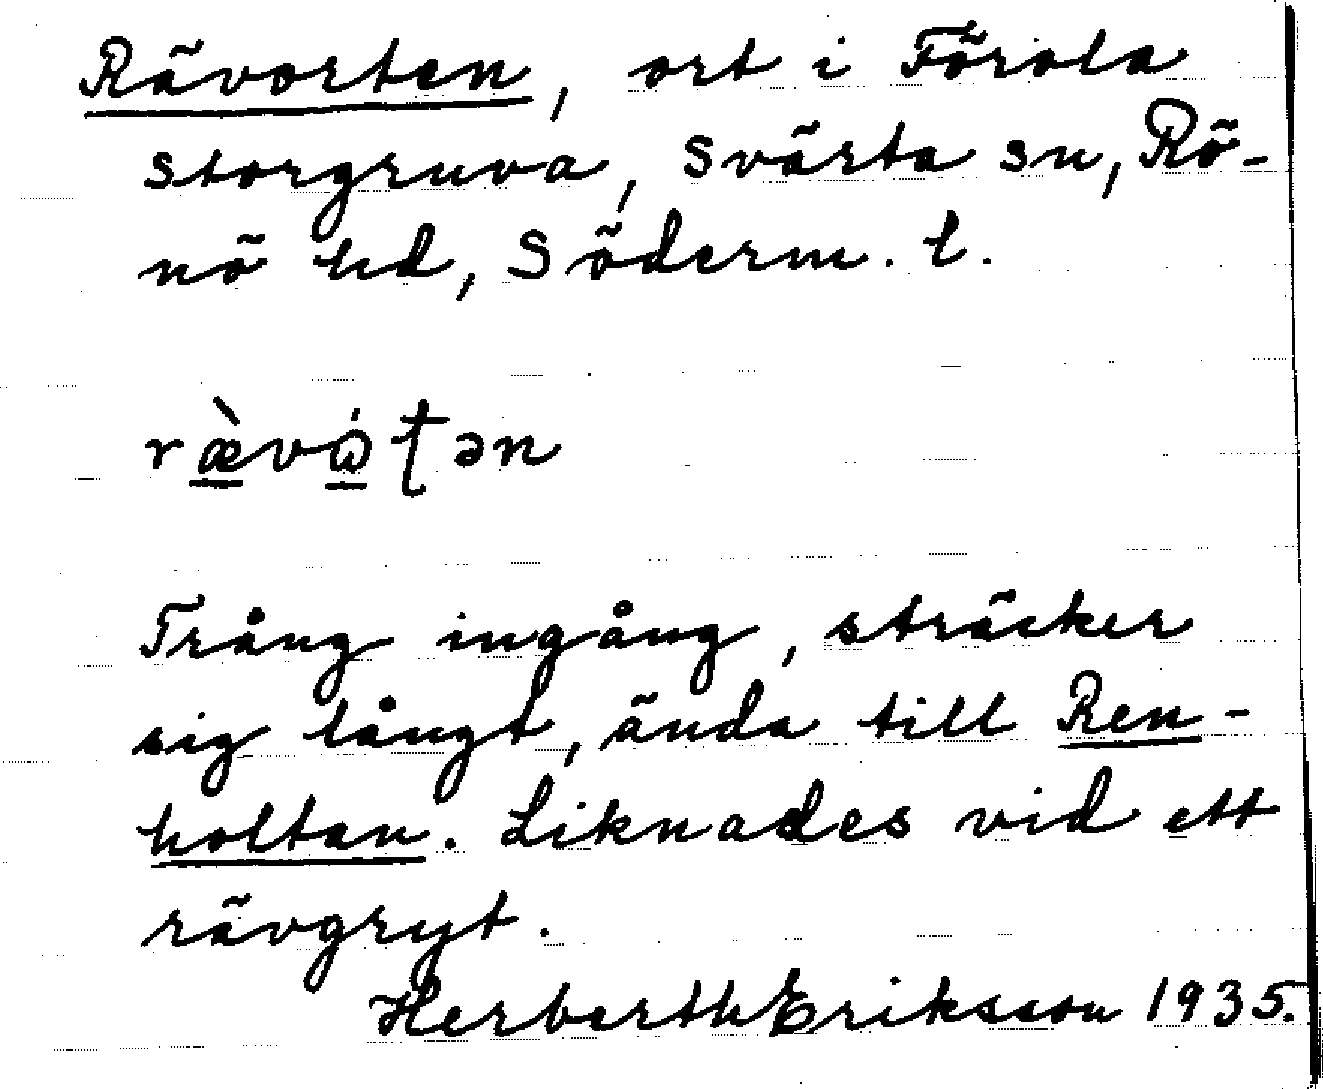 Rävorten, ort i Förola
storgruva, Svärta sn, Rö-
nö hd, Söderm. l.
ræ̀vȯʈən
Trång ingång, sträcker
sig långt, ända till Ren-
holtan. Liknades vid ett
rävgryt.
Herberth Eriksson 1935.